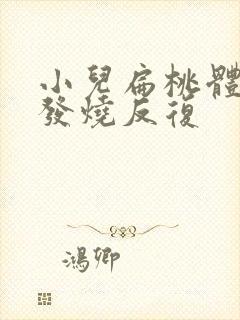 小兒扁桃體
發燒反復
鴻卿